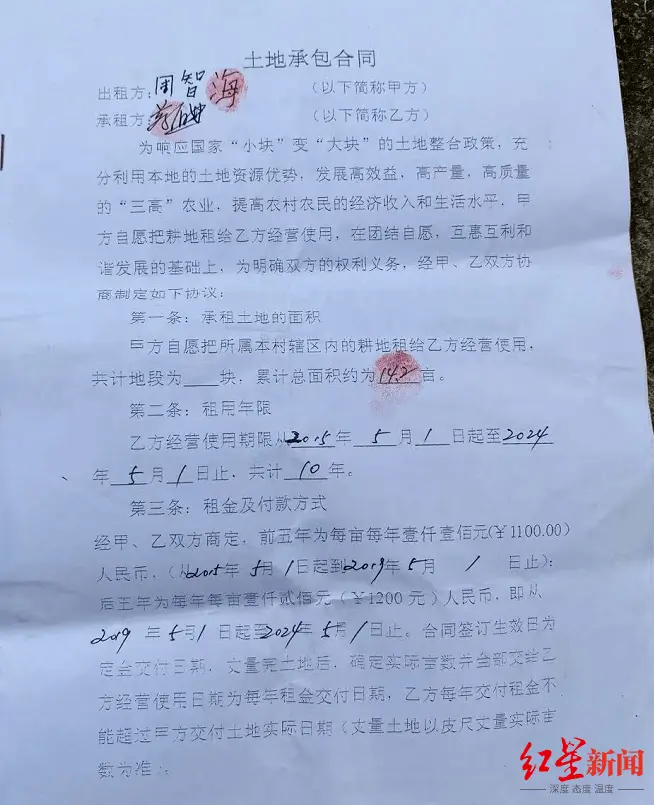 土地承包合同
出租方:周智海 (以下简称甲方)
承租方: (以下简称乙方)
为响应国家“小块”变“大块”的土地整合政策，充
分利用本地的土地资源优势，发展高效益，高产量，高质量
的“三高”农业，提高农村农民的经济收入和生活水平，甲
方自愿把耕地租给乙方经营使用，在团结自愿，互惠互利和
谐发展的基础上，为明确双方的权利义务，经甲、乙双方协
商制定如下协议：
第一条：承租土地的面积
甲方自愿把所属本村辖区内的耕地租给乙方经营使用，
共计地段为___块，累计总面积约为14.2亩。
第二条：租用年限
乙方经营使用期限从2015年 5 月 1 日起至2024
年 5 月 1 日止，共计 10 年。
第三条：租金及付款方式
经甲、乙双方商定，前五年为每亩每年壹仟壹佰元(¥1100.00)
人民币，（从2015年 5月 1日起到2019年 5月 1 日止）；
后五年为每年每亩壹仟贰佰元（¥1200元）人民币，即从
2019 年 5月 1 日起至2024年 5月 1日止。合同签订生效日为
定金交付日期，丈量完土地后，确定实际亩数并全部交给乙
方经营使用日期为每年租金交付日期，乙方每年交付租金不
能超过甲方交付土地实际日期（丈量土地以皮尺丈量实际亩
数为准）。
红星新闻
深度 态度 温度